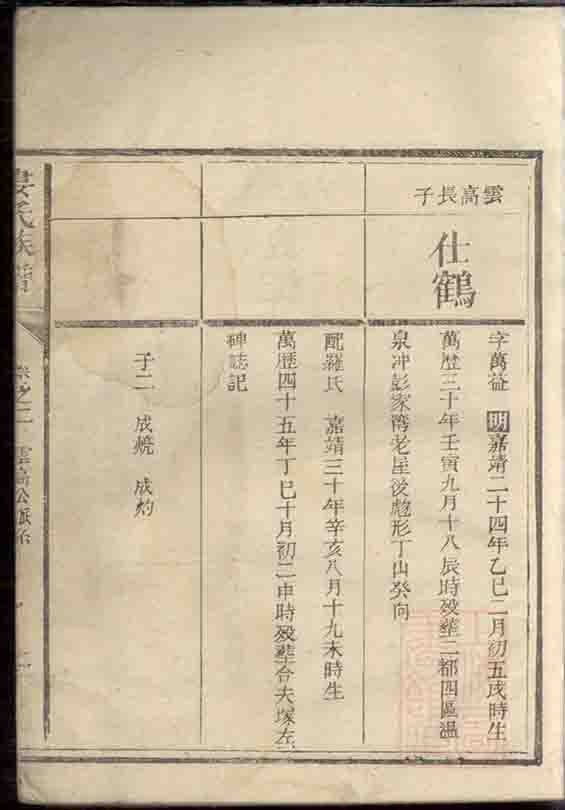 雲高長子
仕鶴
字萬益 明嘉靖二十四年乙巳二月初五戌時生
萬歷三十年壬寅九月十八辰時歿塟二都四區溫
泉冲彭家灣老屋後虎形丁山癸向
配羅氏 嘉靖三十年辛亥八月十九未時生
萬歷四十五年丁巳十月初二申時歿塟合夫塚左
碑誌記
子二 成燒 成灼
氏族譜
卷之二 雲高公派系